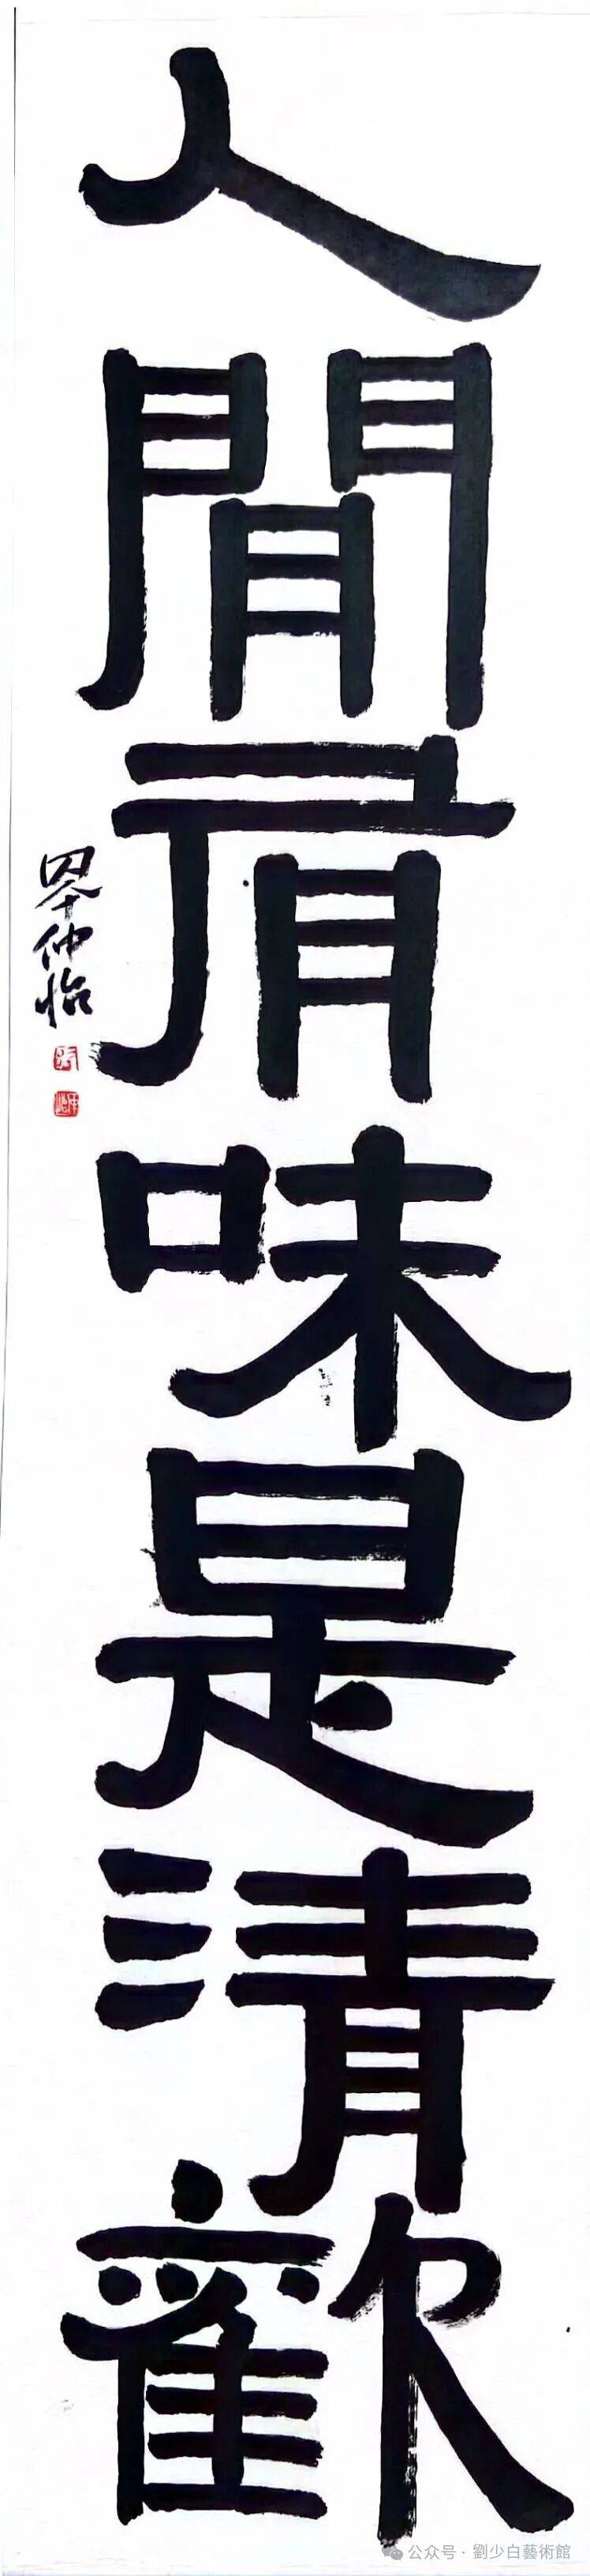 人間有味是清歡
仲怡
公众号 · 劉少白藝術館